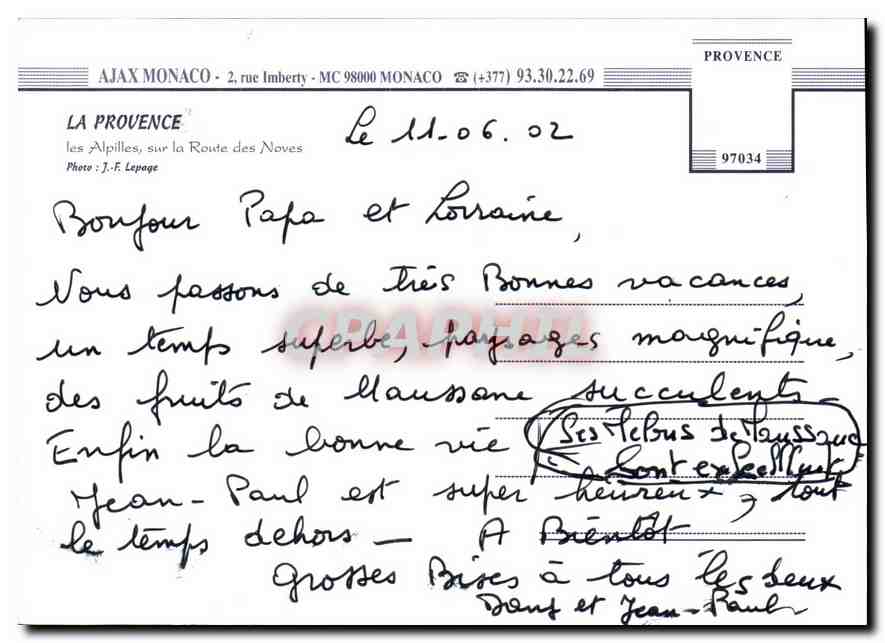 PROVENCE
AJAX MONACO - 2, rue Imberty - MC 98000 MONACO ☎ (+377) 93.30.22.69
LA PROVENCE
les Alpilles, sur la Route des Noves
Photo : J.-F. Lepage
97034
Le 11-06.02
Bonjour Papa et Lorraine,
Nous passons de très Bonnes vacances,
un temps superbe, paysages magnifique,
des fruits de Maussane succulents -
Enfin la bonne vie
Les Melons de Maussane
sont excellents
Jean-Paul est super heureux, tout
le temps dehors - A Bientôt
Grosses Bises à tous les deux
et Jean-Paul